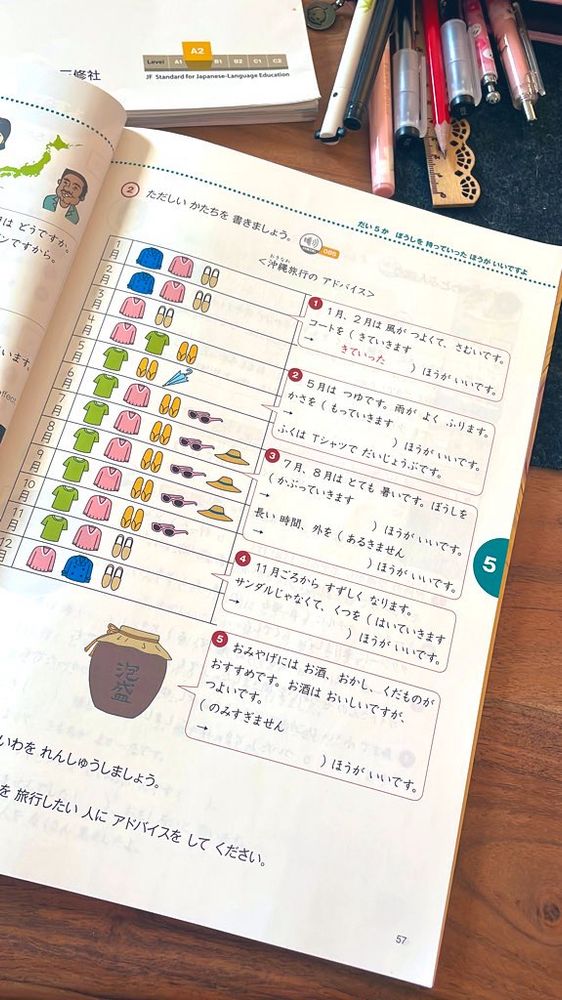 三修社
Level A1 A2 B1 B2 C1 C2
JF Standard for Japanese-Language Education
だい5か ぼうしを 持っていった ほうが いいですよ
2 ただしい かたちを 書きましょう。 085
<沖縄旅行の アドバイス>
おきなわ
1月
2月
3月
4月
5月
6月
7月
8月
9月
10月
11月
12月
1 1月、2月は 風が つよくて、さむいです。
コートを ( きていきます
→ きていった ) ほうが いいです。
2 5月は つゆです。雨が よく ふります。
かさを ( もっていきます
→ ) ほうが いいです。
ふくは Tシャツで だいじょうぶです。
3 7月、8月は とても 暑いです。ぼうしを
( かぶっていきます
→ ) ほうが いいです。
長い 時間、外を ( あるきません
→ ) ほうが いいです。
4 11月ごろから すずしく なります。
サンダルじゃなくて、くつを ( はいていきます
→ ) ほうが いいです。
5 おみやげには お酒、おかし、くだものが
おすすめです。お酒は おいしいですが、
つよいです。
( のみすぎません
→ ) ほうが いいです。
泡盛
は どうですか。
ンですから。
います。
effect
5
いわを れんしゅうしましょう。
を 旅行したい 人に アドバイスを して ください。
57